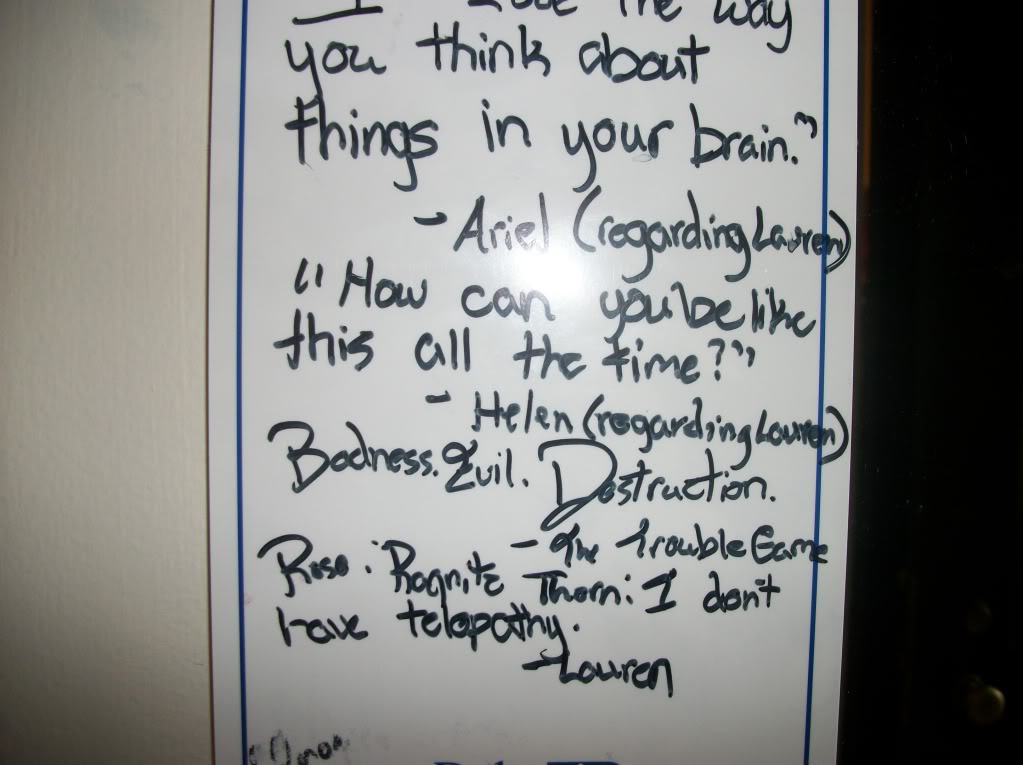 I love the way
you think about
things in your brain."
- Ariel (regarding Lauren)
"How can you be like
this all the time?"
- Helen (regarding Lauren)
Badness. Evil. Destruction.
- The Trouble Game
Rose: Thorn: I don't
have telepathy.
- Lauren